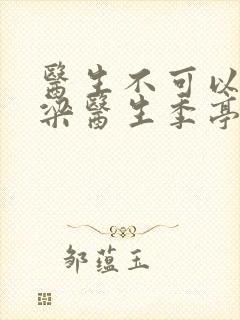 醫生不可以
梁醫生季亭
邹蕴玉